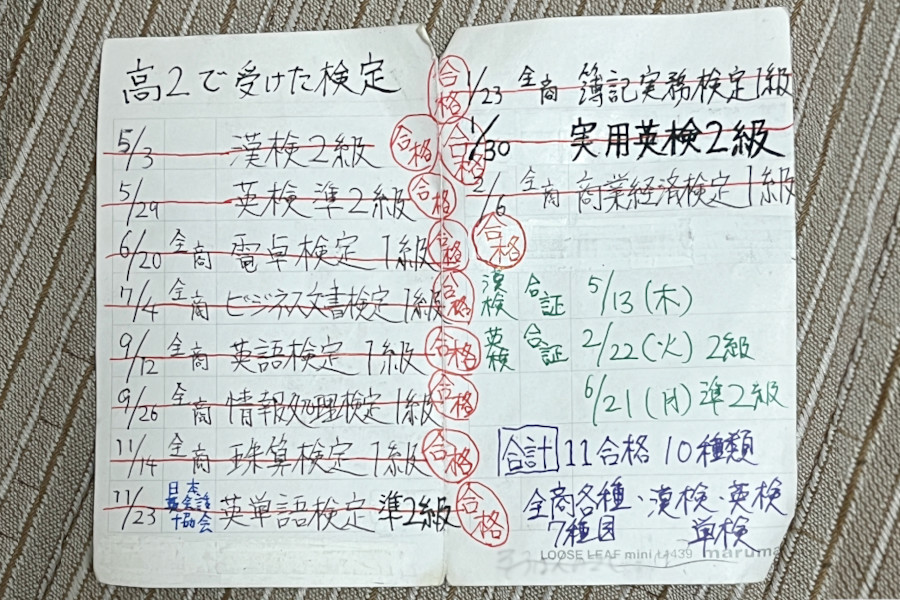 高2で受けた検定
5/3 漢検2級 合格
5/29 英検準2級 合格
6/20 全商 電卓検定1級 合格
7/4 全商 ビジネス文書検定1級 合格
9/12 全商 英語検定1級 合格
9/26 全商 情報処理検定1級 合格
11/14 全商 珠算検定1級 合格
11/23 日本英会話協会 英単語検定準2級 合格
1/23 全商 簿記実務検定1級 合格
1/30 実用英検2級 合格
2/6 全商 商業経済検定1級
合格
漢検 合証 5/13(木)
英検 合証 2/22(火) 2級
6/21(月) 準2級
合計 11合格 10種類
全商各種・漢検・英検
7種目 単検
LOOSE LEAF mini L1439 maruma